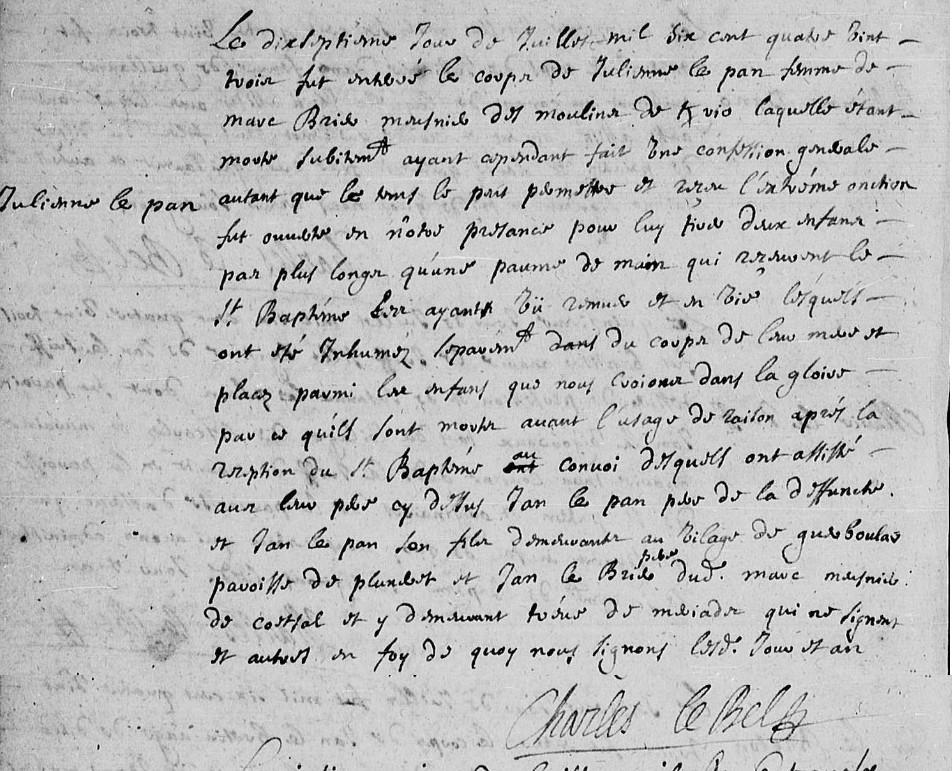 Le dixseptieme Jour de Juillet mil six cent quatre vint
trois fut enterré le corps de Julienne le pan femme de
marc Brien meusnier des moulines de K vio laquelle étant
morte subitemt ayant cependant fait une confession generale
Julienne le pan
autant que le tems le peut permettre et reçeu l'extréme onction
fut ouverte en nôtre presance pour luy tirer deux enfans
pas plus longs qu'une paume de main qui reçeurent le
st Baptéme les ayant vü remuer et en vie lesquels
ont été Inhumez separemt dans du corps de leur mere et
placez parmi les enfans que nous croions dans la gloire
par ce quils sont morts avant l'usage de raison aprés la
reception du st Baptéme au convoi desquels ont assisté
aux leur pere cy dessus Jan le pan pere de la deffuncte.
et Jan le pan son filz demeurants au vilage de guerboulas
paroisse de plunelet et Jan le Brien pere dud. marc meusnier
de coetsal et y demeurant tréve de meriader qui ne signent
et autres en foy de quoy nous signons lesd. Jour et an
Charles le Bel